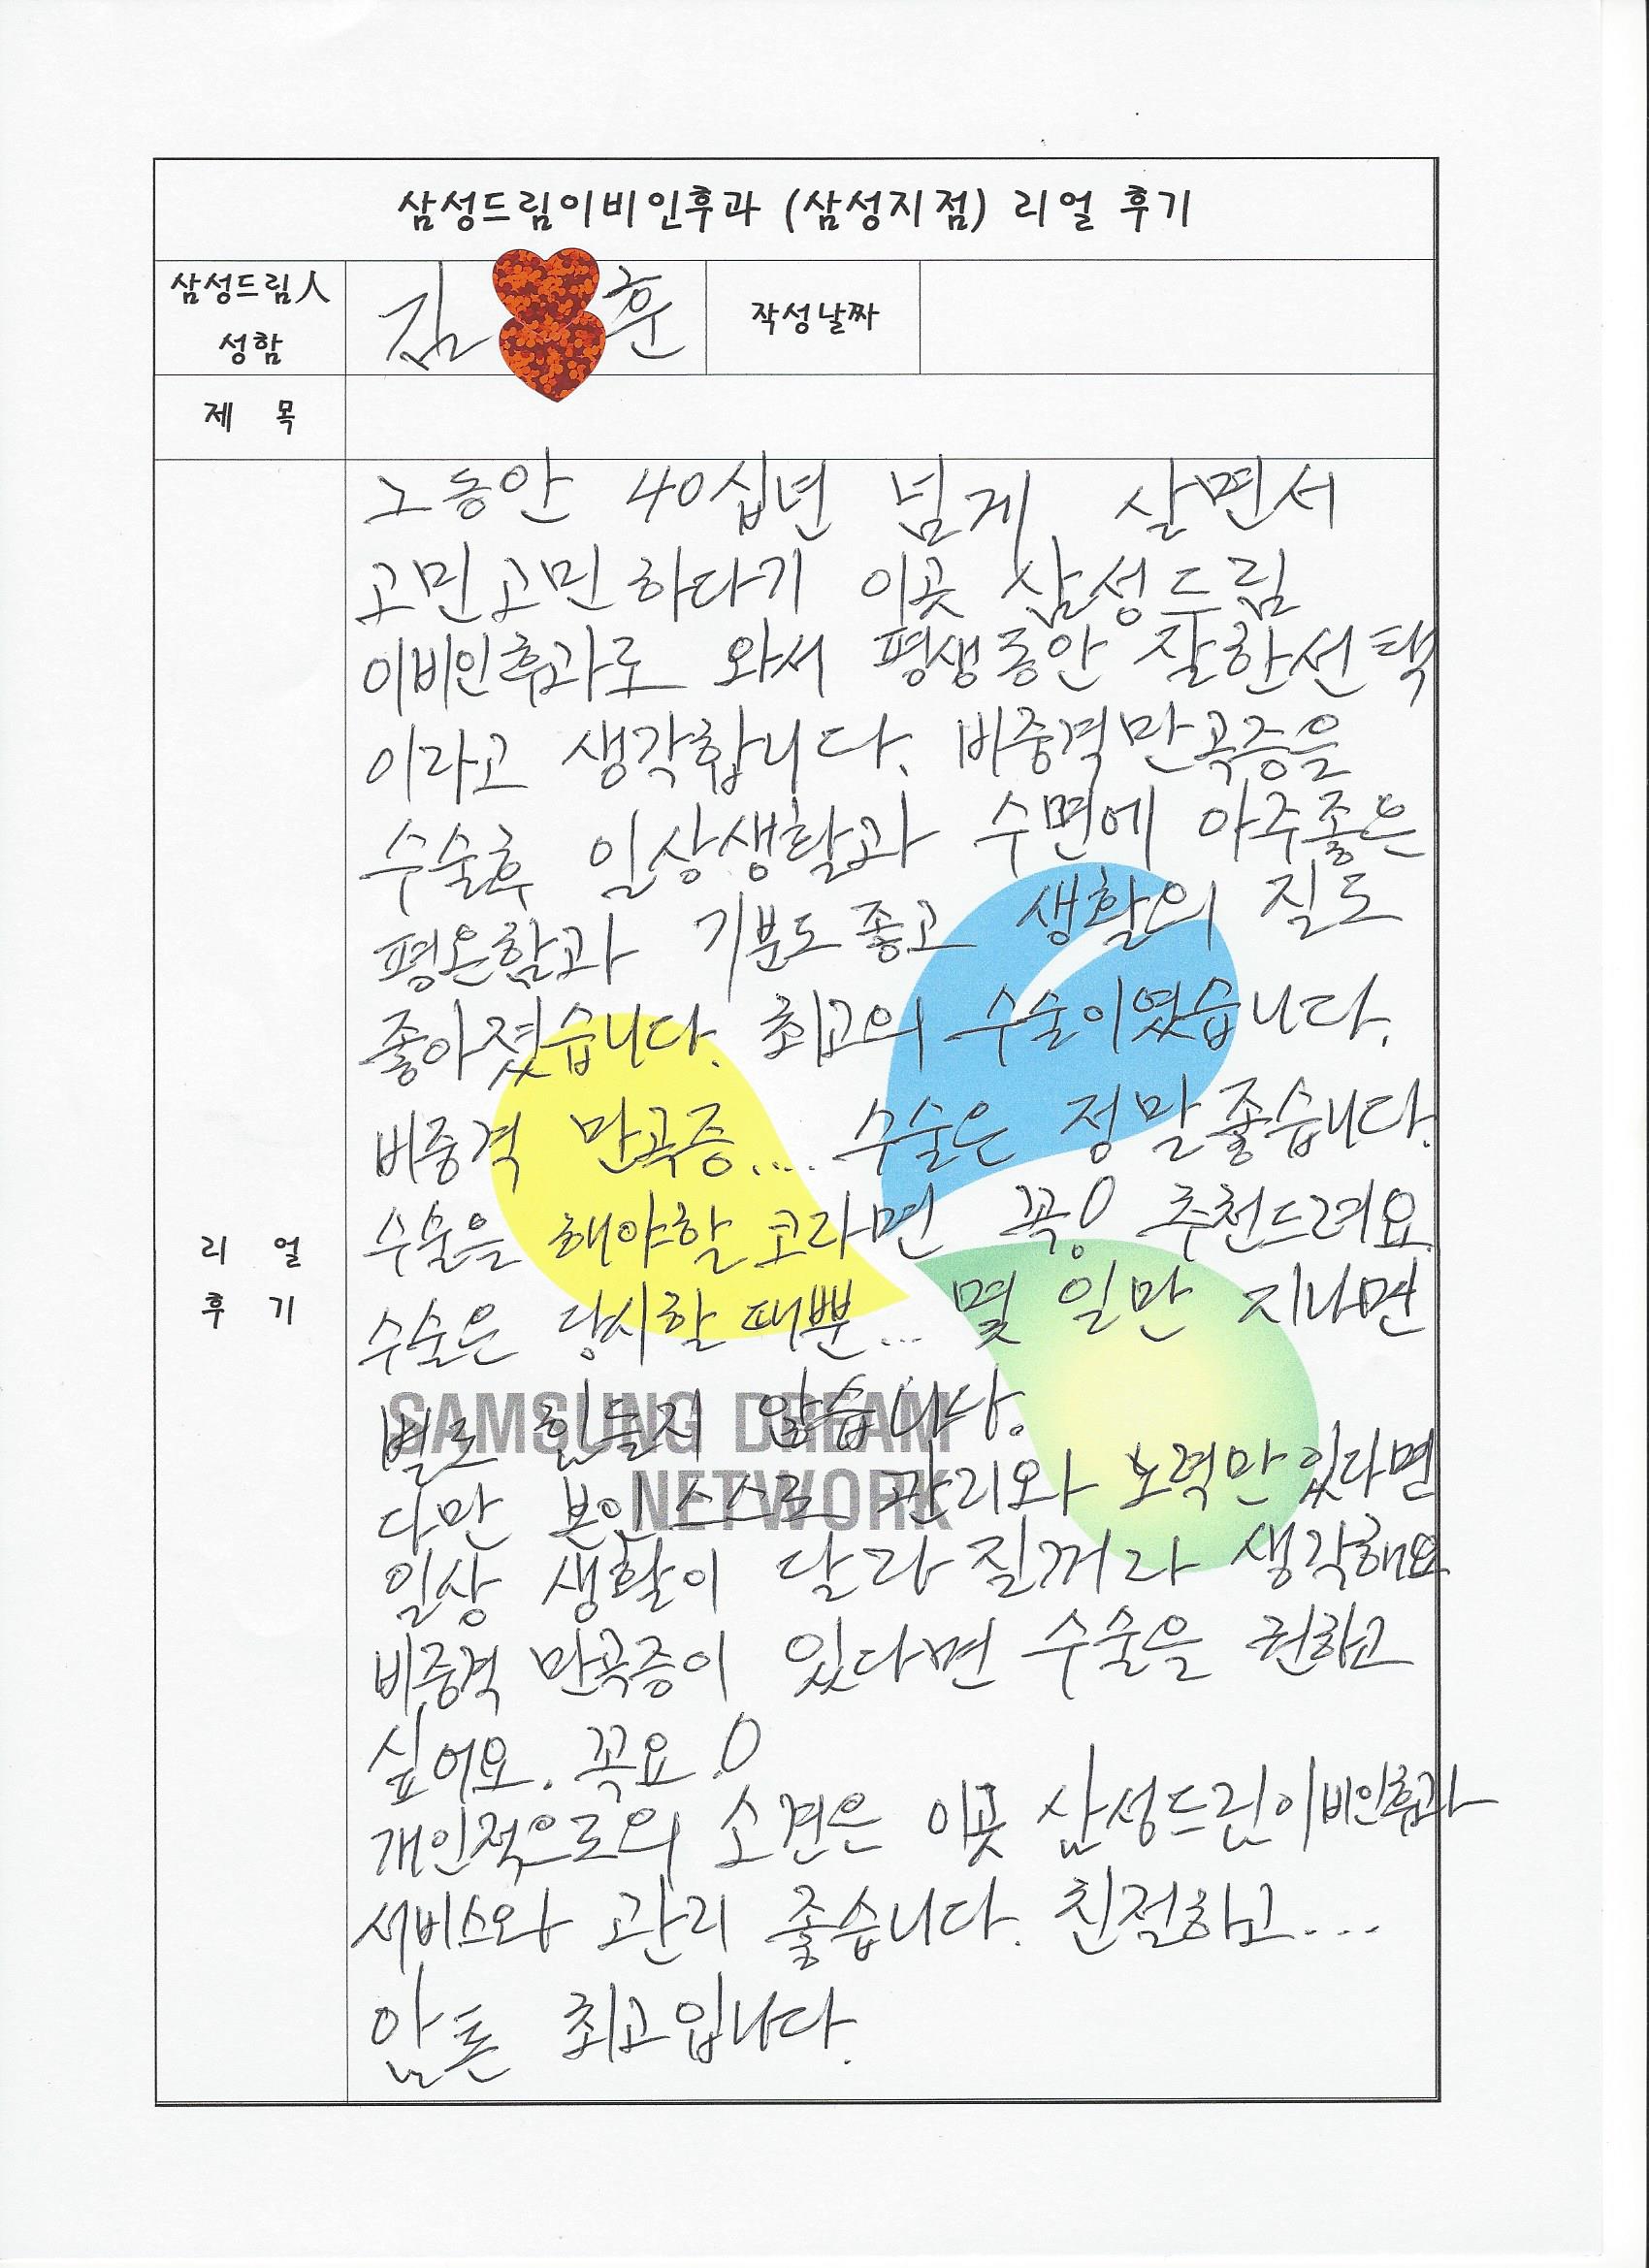 삼성드림이비인후과 (삼성지점) 리얼 후기
삼성드림人
성함
김 훈
작성날짜
제 목
리 얼
후 기
그동안 40십년 넘게 살면서
고민고민하다가 이곳 삼성드림
이비인후과로 와서 평생동안 잘한선택
이라고 생각합니다. 비중격만곡증을
수술후 일상생활과 수면에 아주좋은
평온함과 기분도좋고 생활의 질도
좋아졌습니다. 최고의 수술이였습니다.
비중격 만곡증.... 수술은 정말좋습니다.
수술을 해야할 코라면 꼭! 추천드려요.
수술은 당시할 때뿐... 몇 일만 지나면
별로 힘들지 않습니다.
다만 본인스스로 관리와 노력만있다면
일상 생활이 달라질꺼라 생각해요
비중격 만곡증이 있다면 수술을 권하고
싶어요. 꼭요!
개인적으로의 소견은 이곳 삼성드림이비인후과
서비스와 관리 좋습니다. 친절하고...
암튼 최고입니다.
SAMSUNG DREAM
NETWORK